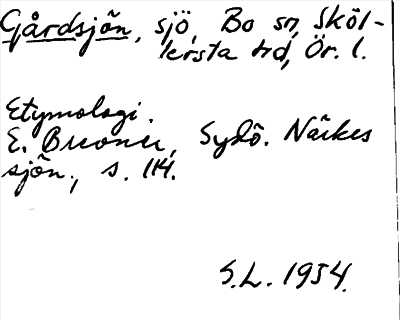 Gårdsjön, sjö, Bo sn, Sköl-
lersta hd, Ör. l.
Etymologi.
E. Brevner, Sydö. Närkes
sjön., s. 114.
S.L. 1954.